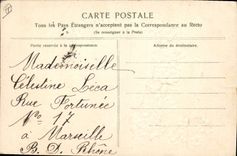 CARTE POSTALE
Tous les Pays Etrangers n'acceptent pas la Correspondance au Recto
(Se renseigner à la Poste)
Partie réservée à la correspondance
Adresse du destinataire
Mademoiselle
Célestine Leca
Rue Fortunée
Nro 17
à Marseille
B. D. Rhône